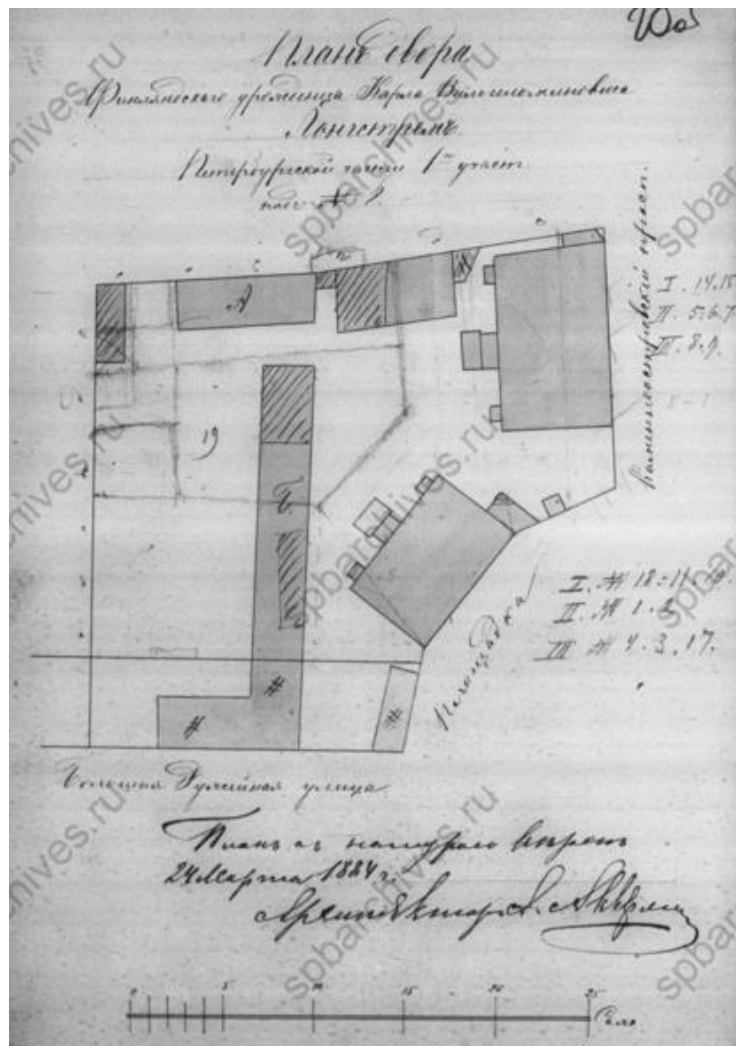 Планъ двора
Финляндскаго уроженца Карла
Лонгстремъ
Петербургской части 1го участ.
подъ № 1
Каменноостровскій просп.
I. 14.15
II. 5.6.7
III. 8.9.
А
19
Б
I. №
II. № 1.2.
III № 4.3.17.
Площадка
Большая Ружейная улица
Планъ съ натурою вѣренъ
24 Марта 1884 г.
Архитекторъ
0 5 10 15 20 25 Саж.
spbarchives.ru